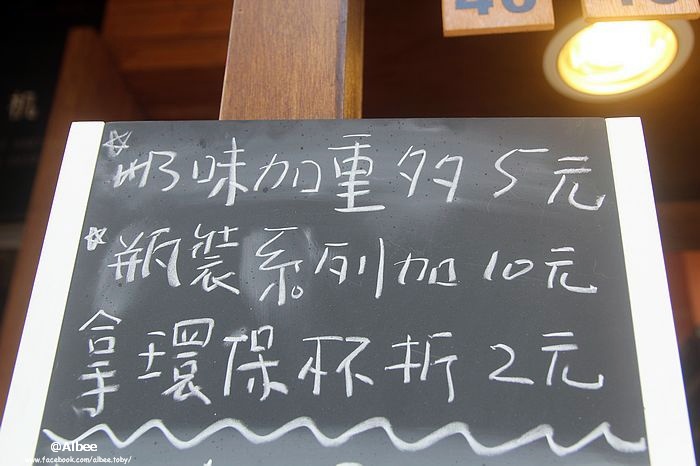 ☆奶味加重多5元
☆瓶裝系列加10元
拿環保杯折2元
@AIbee
www.facebook.com/aibee.toby/